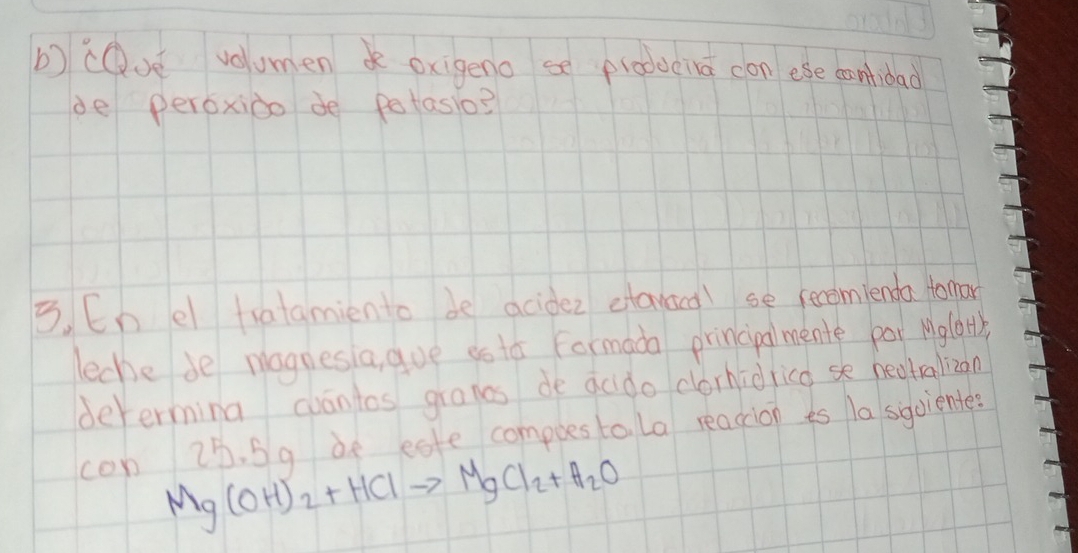 b) ¿Qué volumen de oxigeno se producirá con ese cantidad
de peróxido de potasio?
3. En el tratamiento de acidez se recomienda tomar
leche de magnesia, que esta formada principalmente por Mg(OH)2,
determina cuántos gramos de ácido clorhidrico se neutralizan
con 25.5g de este compuesto. La reacción es la siguiente:
Mg(OH)2 + HCl → MgCl2 + H2O